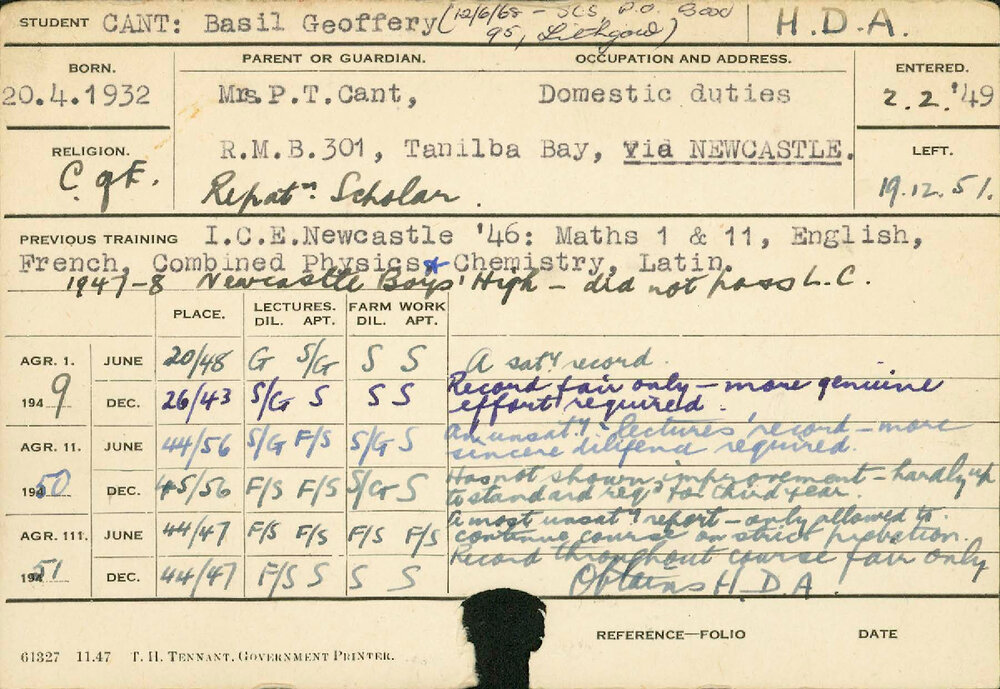 STUDENT CANT: Basil Geoffery (12/6/68 - SCS P.O. Box
95, Lithgow) H.D.A.
BORN. PARENT OR GUARDIAN. OCCUPATION AND ADDRESS. ENTERED.
20.4.1932 Mrs.P.T.Cant, Domestic duties 2.2.'49
RELIGION. R.M.B.301, Tanilba Bay, via NEWCASTLE. LEFT.
C of E. Repatn. Scholar. 19.12.51.
PREVIOUS TRAINING I.C.E.Newcastle '46: Maths 1 & 11, English,
French, Combined Physics * Chemistry, Latin.
1947-8 Newcastle Boys' High - did not pass L.C.
PLACE. LECTURES. FARM WORK
DIL. APT. DIL. APT.
AGR. 1. JUNE 20/48 G S/G S S A saty record.
1949 DEC. 26/43 S/G S S S Record fair only - more genuine
effort required.
AGR. 11. JUNE 44/56 S/G F/S S/G S An unsaty lectures' record - more
sincere diligence required.
1950 DEC. 45/56 F/S F/S S/G S Has not shown improvement - hardly up
to standard reqd for third year.
AGR. 111. JUNE 44/47 F/S F/S F/S F/S A most unsaty report - only allowed to
continue course on strict probation.
1951 DEC. 44/47 F/S S S S Record throughout course fair only
Obtains H.D.A.
REFERENCE—FOLIO DATE
61327 11.47 T. H. TENNANT, GOVERNMENT PRINTER.